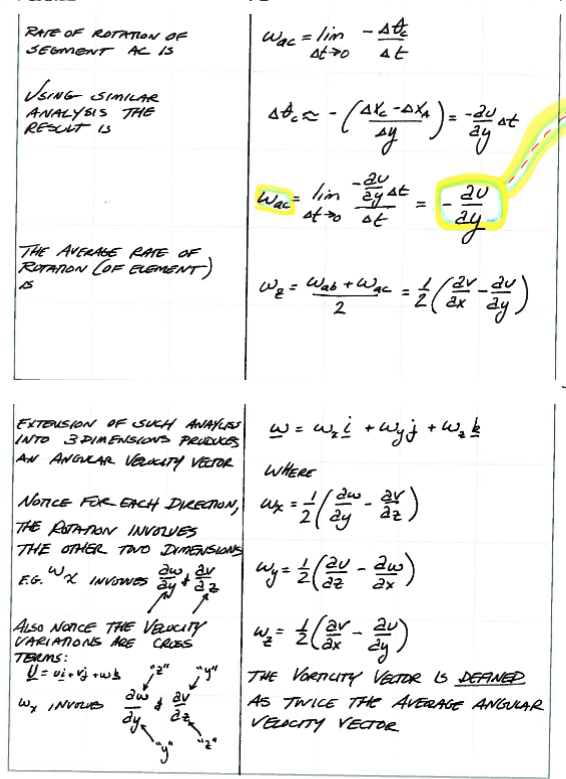 RATE OF ROTATION OF
SEGMENT AC IS
ω_ac = lim Δt→0 -Δθ_c / Δt
USING SIMILAR
ANALYSIS THE
RESULT IS
Δθ_c ≈ - ( (Δx_c - Δx_A) / Δy ) = -∂u/∂y Δt
ω_ac = lim Δt→0 (-∂u/∂y Δt) / Δt = - ∂u/∂y
THE AVERAGE RATE OF
ROTATION (OF ELEMENT)
IS
ω_z = (ω_ab + ω_ac) / 2 = 1/2 ( ∂v/∂x - ∂u/∂y )
EXTENSION OF SUCH ANAYLES
INTO 3 DIMENSIONS PRODUCES
AN ANGULAR VELOCITY VECTOR
ω = ω_x i + ω_y j + ω_z k
WHERE
NOTICE FOR EACH DIRECTION,
THE ROTATION INVOLVES
THE OTHER TWO DIMENSIONS
E.G. ω_x INVOLVES ∂w/∂y & ∂v/∂z
ω_x = 1/2 ( ∂w/∂y - ∂v/∂z )
ω_y = 1/2 ( ∂u/∂z - ∂w/∂x )
ALSO NOTICE THE VELOCITY
VARIATIONS ARE CROSS
TERMS:
U = ui + vj + wk
ω_x INVOLVES ∂w/∂y & ∂v/∂z
"z" "y"
"y" "z"
ω_z = 1/2 ( ∂v/∂x - ∂u/∂y )
THE VORTICITY VECTOR IS DEFINED
AS TWICE THE AVERAGE ANGULAR
VELOCITY VECTOR